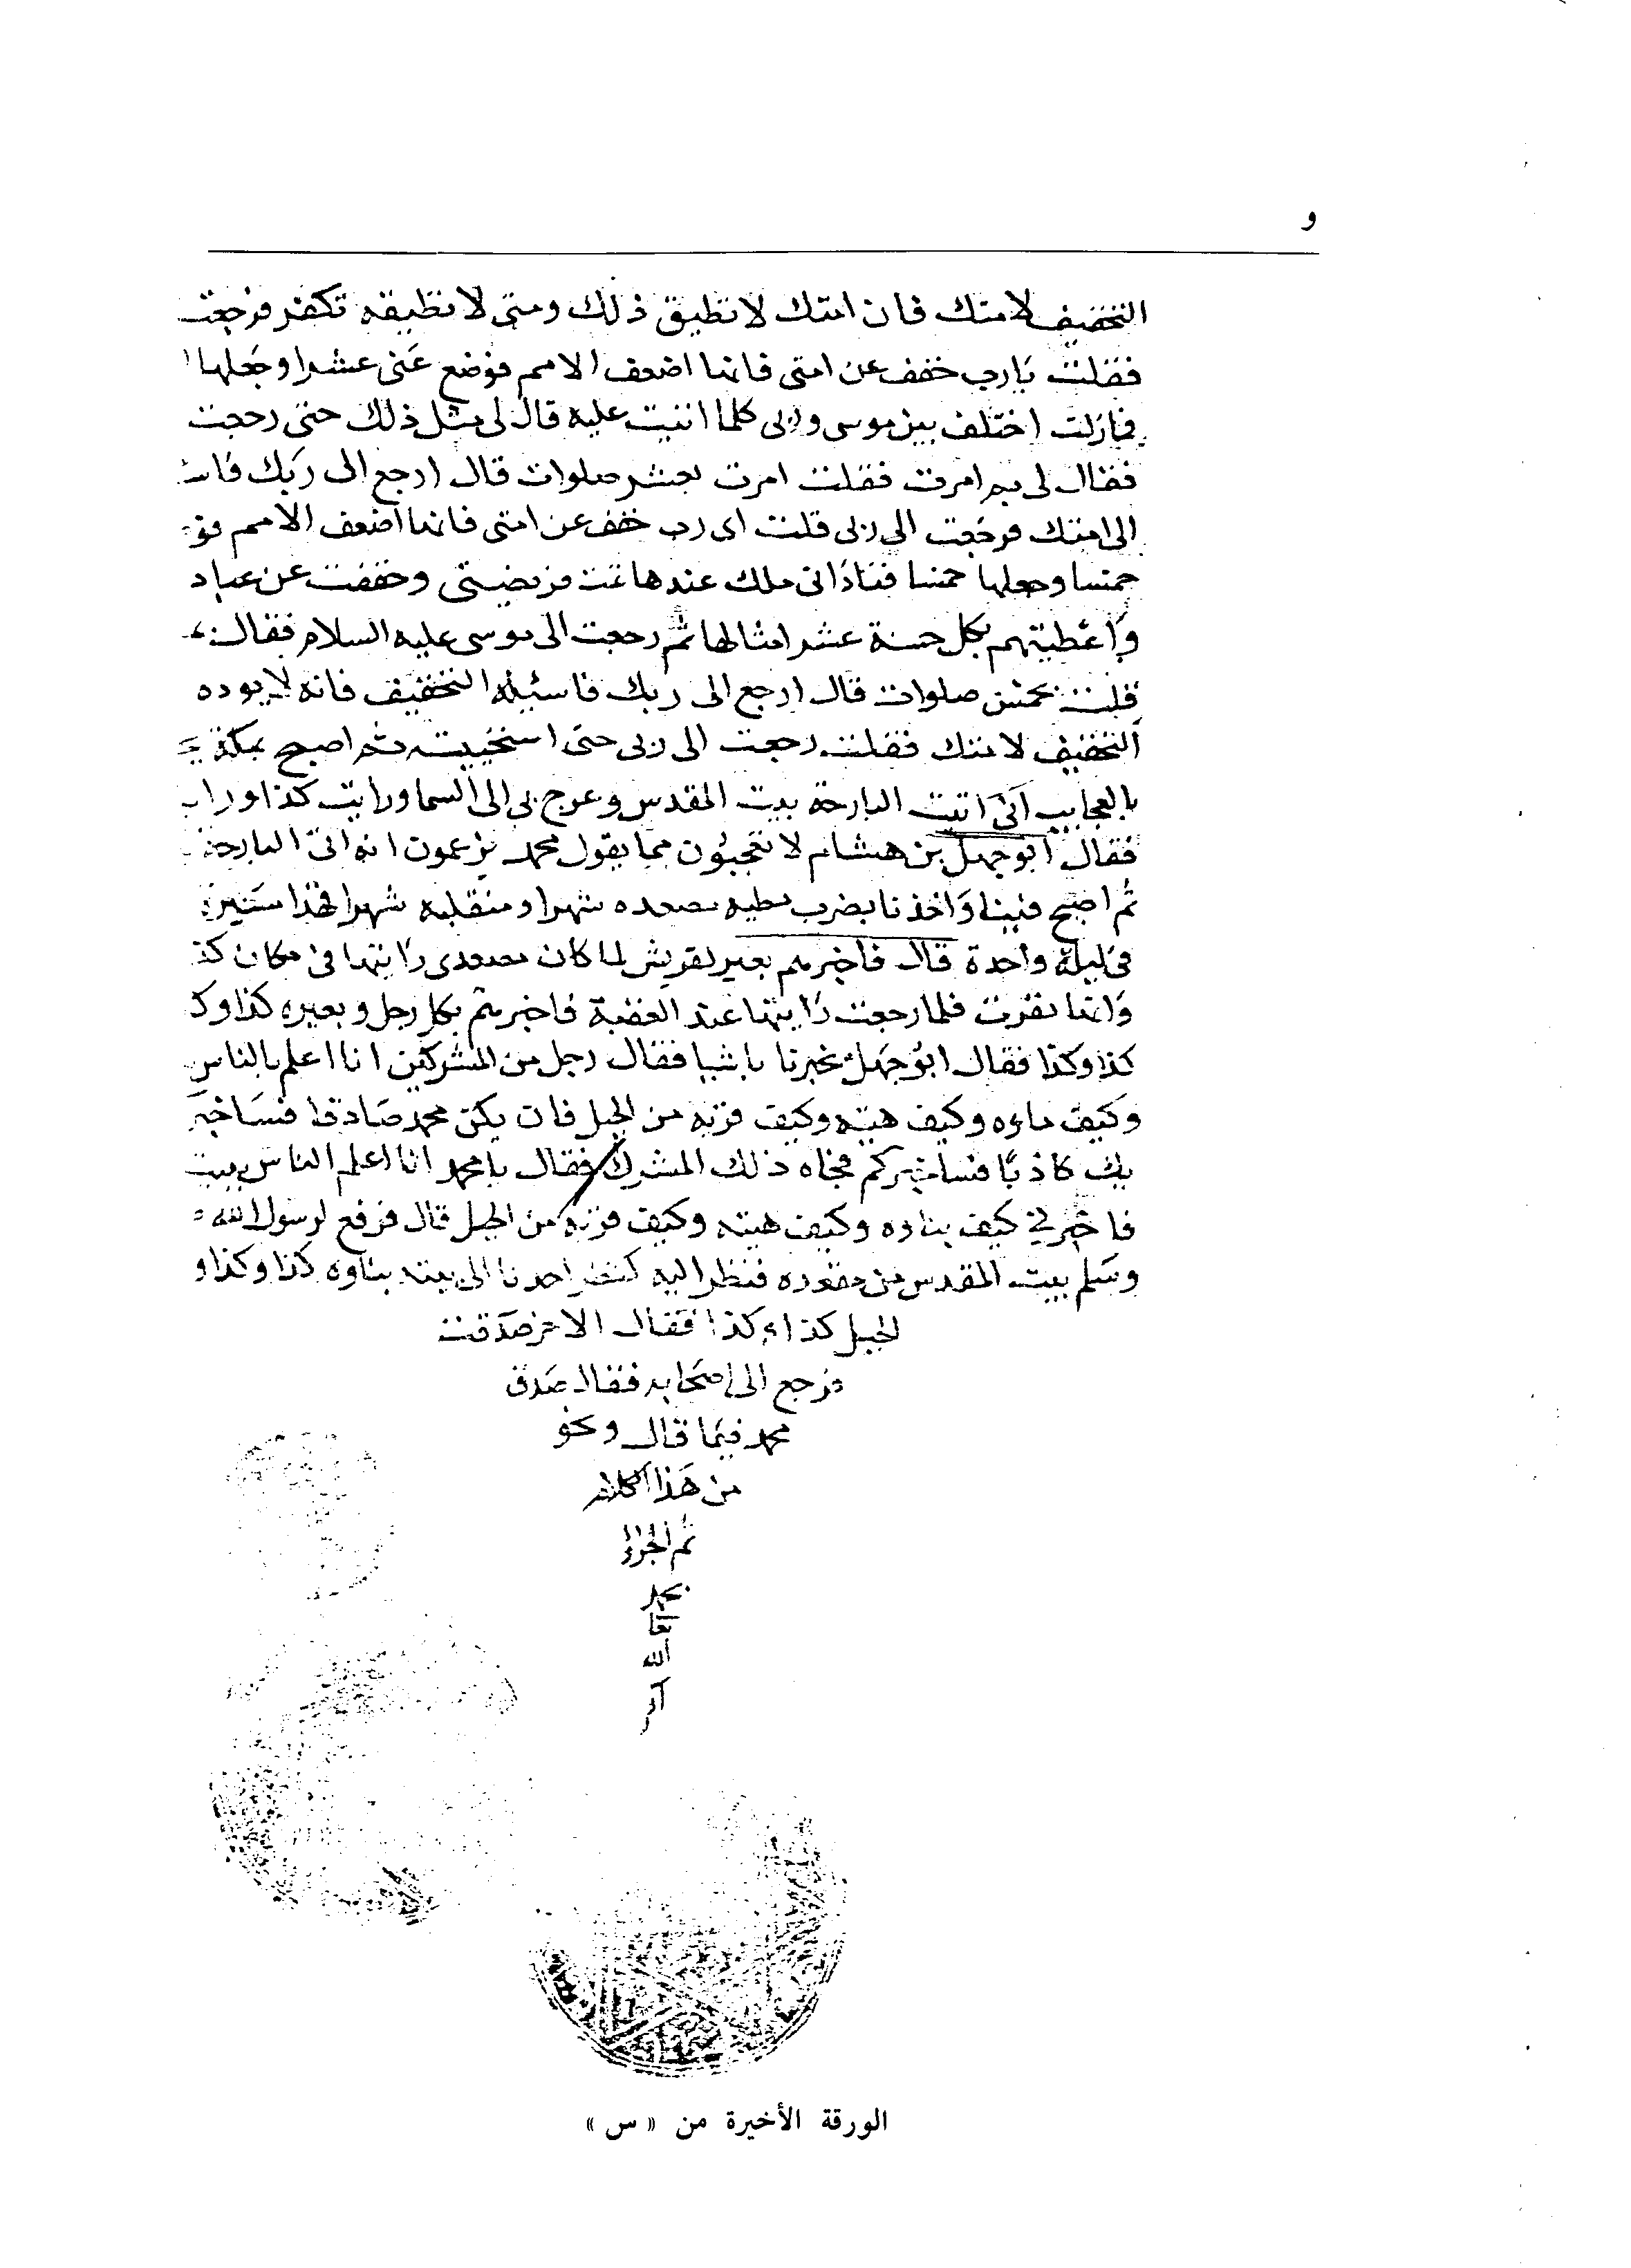 و
التخفيف لامتك فان امتك لا تطيق ذلك ومتى لا تطيقه تكفر فرجعت
فقلت يا رب خفف عن امتى فانها اضعف الامم فوضع عنى عشرا وجعلها
فمازلت اختلف بين موسى وربى كلما اتيت عليه قال لى مثل ذلك حتى رجعت
فقال لى بم امرت فقلت امرت بعشر صلوات قال ارجع الى ربك
الى امتك فرجعت الى ربى قلت اى رب خفف عن امتى فانها اضعف الامم
خمسا وجعلها خمسا فنادانى ملك عندها تمت فريضتى وخففت عن عباد
واعطيتهم بكل حسنة عشر امثالها ثم رجعت الى موسى عليه السلام فقال
قلت بخمس صلوات قال ارجع الى ربك فاسئله التخفيف فانه لا يوده
التخفيف لامتك فقلت رجعت الى ربى حتى استحييت ثم اصبح بمكة
بالعجايب انى اتيت البارحة بيت المقدس وعرج بى الى السما ورايت كذا وراي
فقال ابو جهل بن هشام لا تعجبون مما يقول محمد يزعمون انه اتى البارحة
ثم اصبح فينا واخذنا يضرب مطيه مصعده شهرا ومنقلبه شهرا فهذا
فى ليلة واحدة قال فاخبرهم بعير لقريش لما كان مصعدى رايتها فى مكان
وانها نفرت فلما رجعت رايتها عند العقبة فاخبرهم بكل رجل وبعيره كذا
كذا وكذا فقال ابو جهل يخبرنا باشيا فقال رجل من المشركين انا اعلم بالناس
وكيف بناوه وكيف هيته وكيف قربه من الجبل فان يكن محمد صادقا
يك كاذبا فساخبركم فجاه ذلك المشرك فقال يا محمد انا اعلم الناس ببيت
فاخبرنى كيف بناوه وكيف هيته وكيف قربه من الجبل قال فرفع لرسول الله
وسلم بيت المقدس من مقعده فنظر اليه كنظر احدنا الى بيته بناوه كذا وكذا و
الجبل كذا وكذا فقال الاخر صدقت
فرجع الى اصحابه فقال صدق
محمد فيما قال ونحو
من هذا الكلام
تم الجزء
بحمد
الله
الورقة الأخيرة من « س »